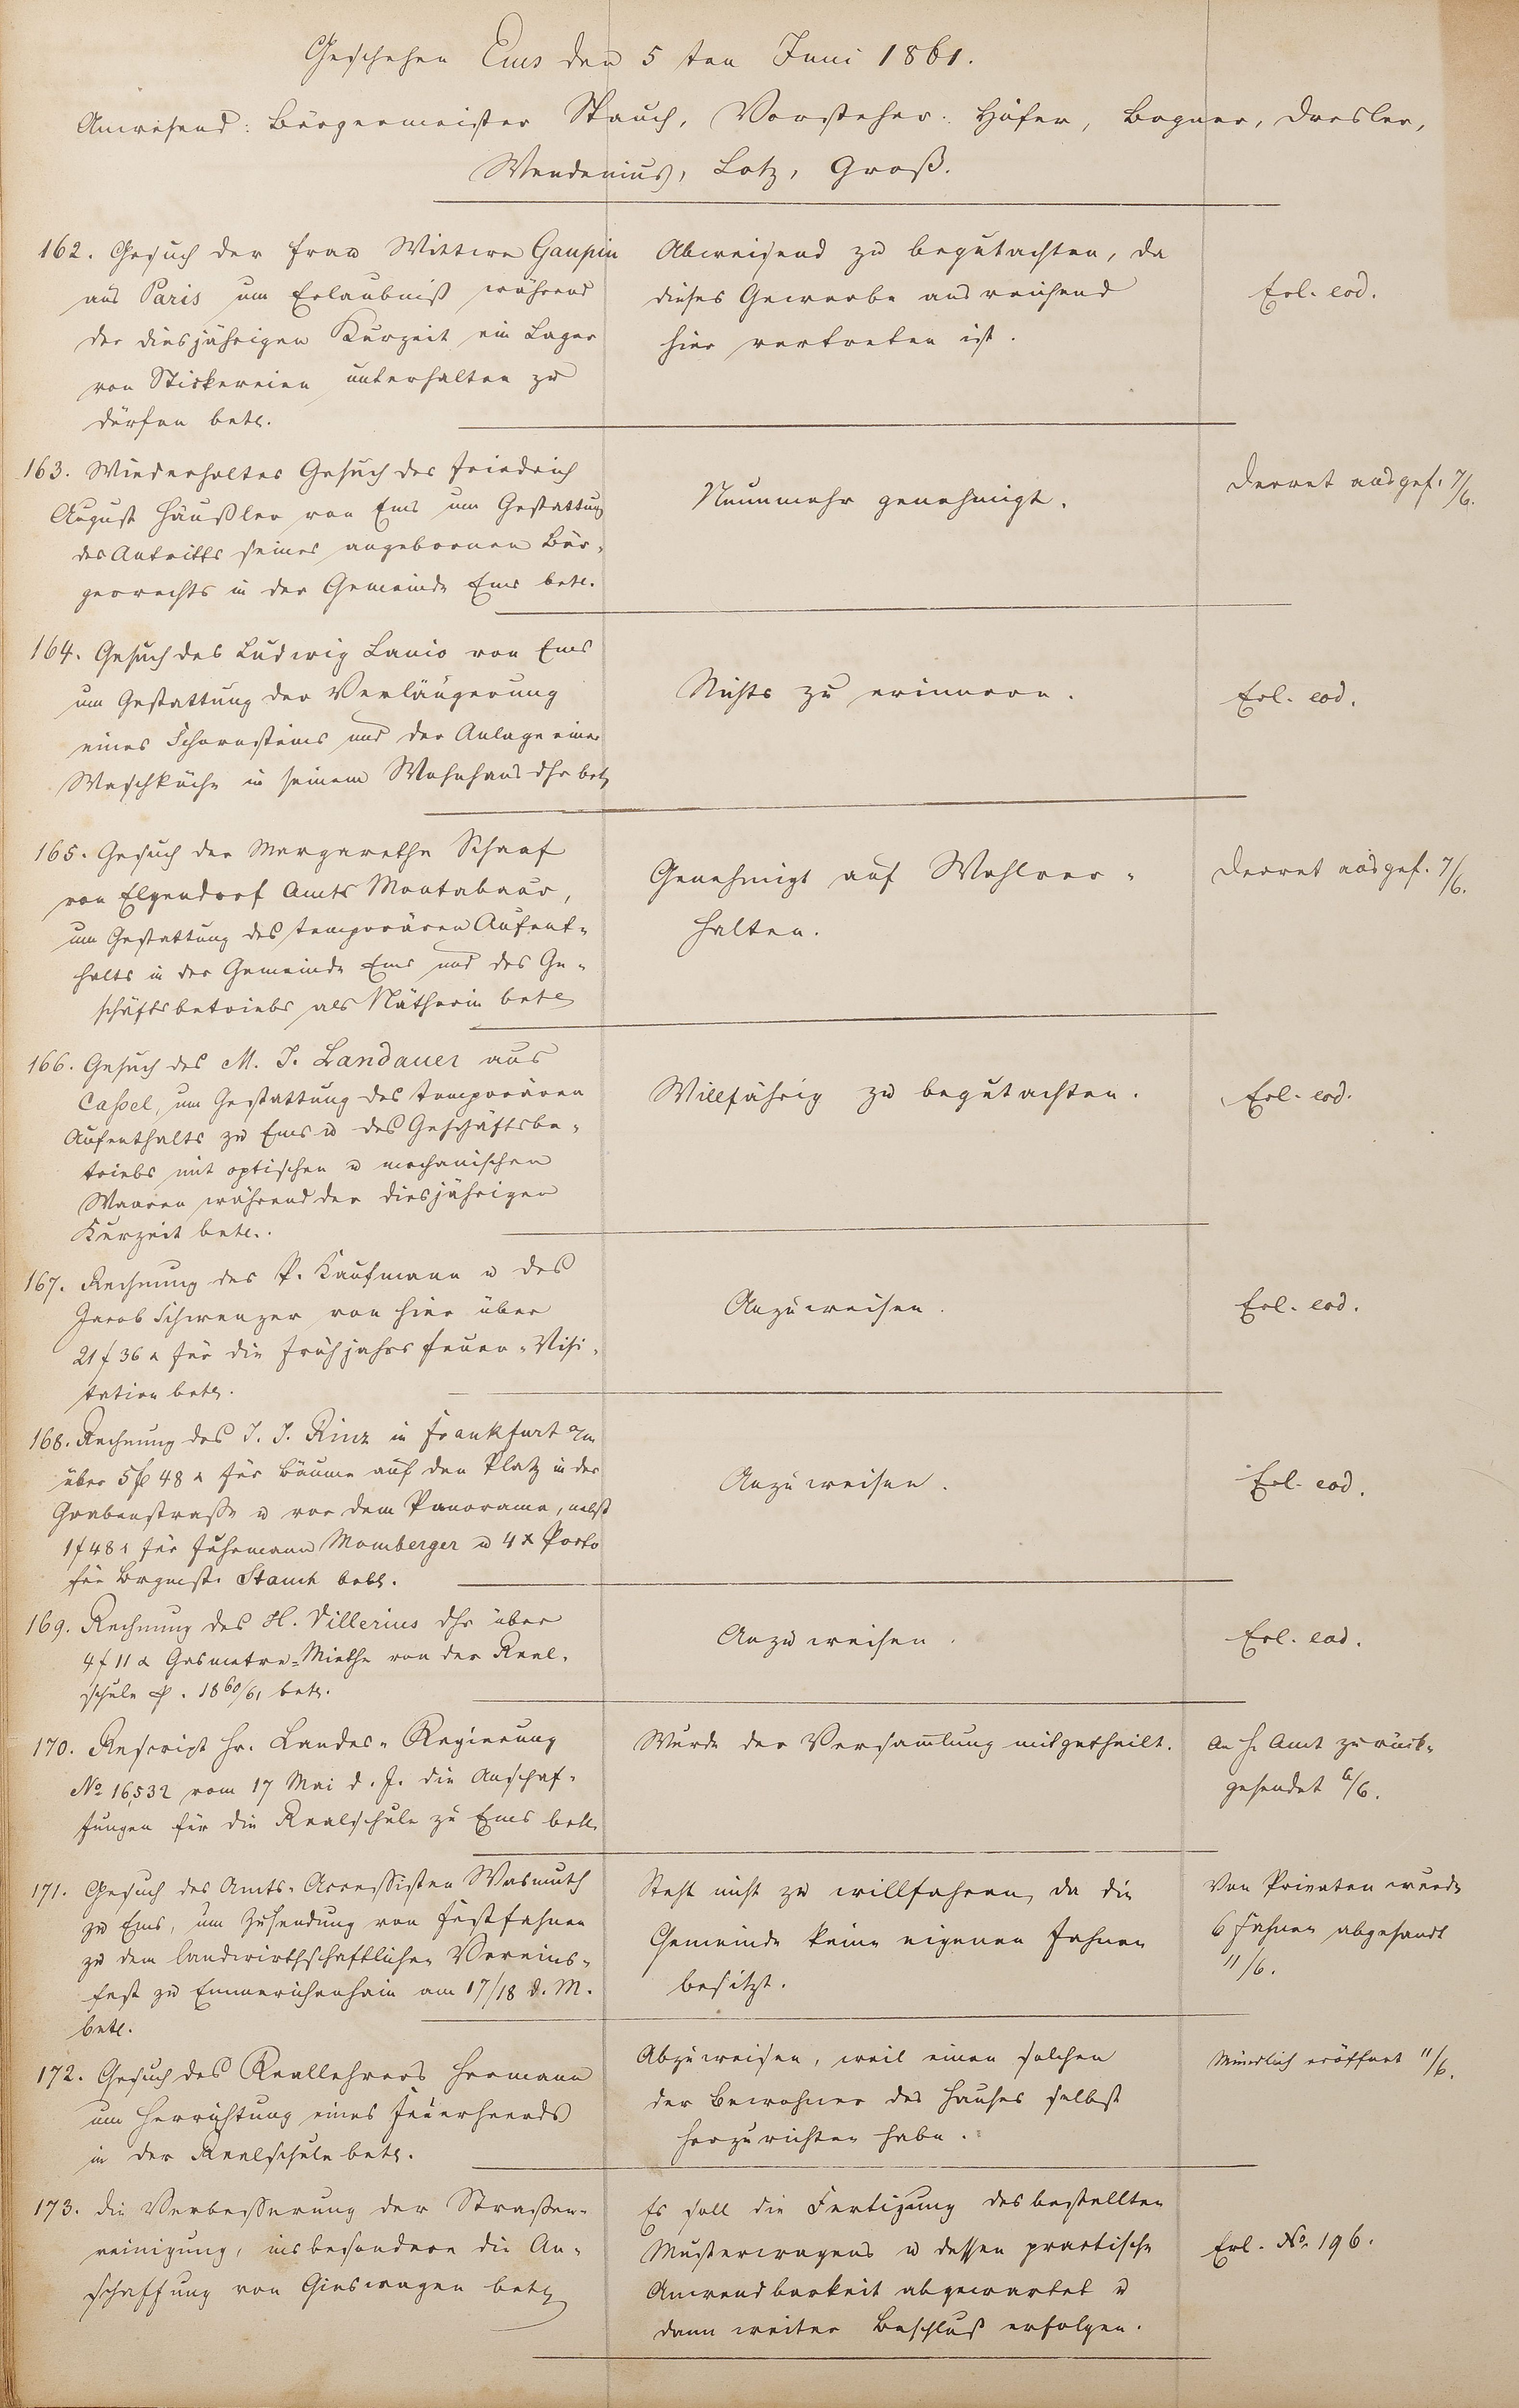 Geschehen Ems den 5 ten Juni 1861.
Anwesend: Bürgermeister Stauch, Vorsteher: Höfer, Bogner, Dresler,
Wendenius, Lotz, Groß.
162. Gesuch der Frau Wittwe Gaupin
aus Paris um Erlaubniß während
der diesjährigen Kurzeit ein Lager
von Stickereien unterhalten zu
dürfen betr.
Abweisend zu begutachten, da
dieses Gewerbe ausreichend
hier vertreten ist.
Erl. eod.
163. Wiederholtes Gesuch des Friedrich
August Häußler von Ems um Gestattung
des Antritts seines angebornen Bür-
gerrechts in der Gemeinde Ems betr.
Nunmehr genehmigt.
Decret ausgef. 7/6.
164. Gesuch des Ludwig Lanio von Ems
um Gestattung der Verlängerung
eines Schornsteins und der Anlage einer
Waschküche in seinem Wohnhaus dhr betr
Nichts zu erinnern.
Erl. eod.
165. Gesuch der Margarethe Schaaf
von Elgendorf Amts Montabaur,
um Gestattung des temporären Aufent-
halts in der Gemeinde Ems und des Ge-
schäftsbetriebs als Nätherin betr
Genehmigt auf Wohlver-
halten.
Decret ausgef. 7/6.
166. Gesuch des M. J. Landauer aus
Cassel, um Gestattung des temporären
Aufenthalts zu Ems u des Geschäftsbe-
triebs mit optischen u mechanischen
Waaren während der diesjährigen
Kurzeit betr.
Willfährig zu begutachten.
Erl. eod.
167. Rechnung des P. Kaufmann u des
Jacob Schwenzer von hier über
21 f 36 x für die Frühjahrs Feuer-Visi-
tation betr.
Anzuweisen.
Erl. eod.
168. Rechnung des J. J. Rinz in Frankfurt a/m
über 5 f 48 x für Bäume auf den Platz in der
Grabenstraße u vor dem Panorama, nebst
1 f 48 x für Fuhrmann Momberger u 4 x Porto
für Brgmstr. Stauch betr.
Anzuweisen.
Erl. eod.
169. Rechnung des H. Villerius dhr über
4 f 11 x Gasmeter-Miethe von der Real-
schule p. 1860/61 betr.
Anzuweisen.
Erl. eod.
170. Rescript Hr. Landes-Regierung
No 16,532 vom 17 Mai d. J. die Anschaf-
fungen für die Realschule zu Ems betr.
Wurde der Versam̅lung mitgetheilt.
An H. Amt zurück-
gesendet 6/6.
171. Gesuch des Amts-Accessisten Wasmuth
zu Ems, um Zusendung von Festfahnen
zu dem landwirthschaftlichen Vereins-
fest zu Emmerichenhain am 17/18 d. M.
betr.
Steht nicht zu willfahren, da die
Gemeinde keine eigenen Fahnen
besitzt.
Von Privaten wurde
6 Fahnen abgesandt
11/6.
172. Gesuch des Reallehrers Hermann
um Herrichtung eines Feuerheerds
in der Realschule betr.
Abzuweisen, weil einen solchen
der Bewohner des Hauses selbst
herzurichten habe.
Mündlich eröffnet 11/6.
173. Die Verbesserung der Straßen-
reinigung, insbesondere die An-
schaffung von Gieswagen betr
Es soll die Fertigung des bestellten
Musterwagens u dessen practische
Anwendbarkeit abgewartet u
dann weiter Beschluß erfolgen.
Erl. No. 196.